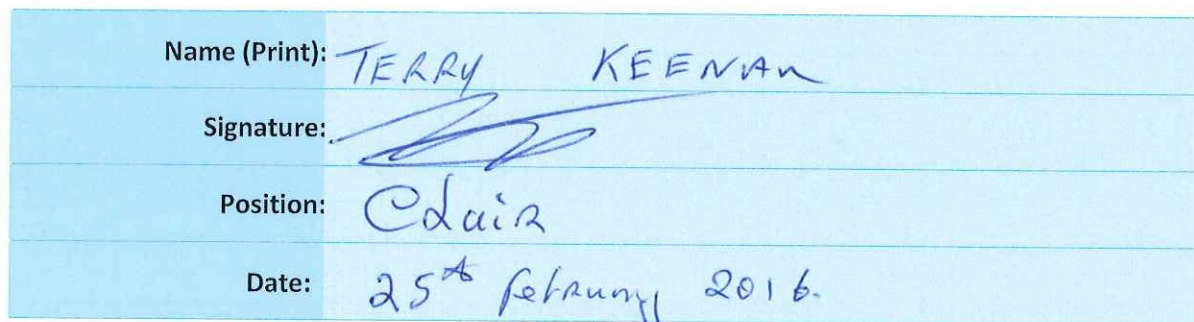 Name (Print): TERRY KEENAN
Signature:
Position: Chair
Date: 25th February 2016.